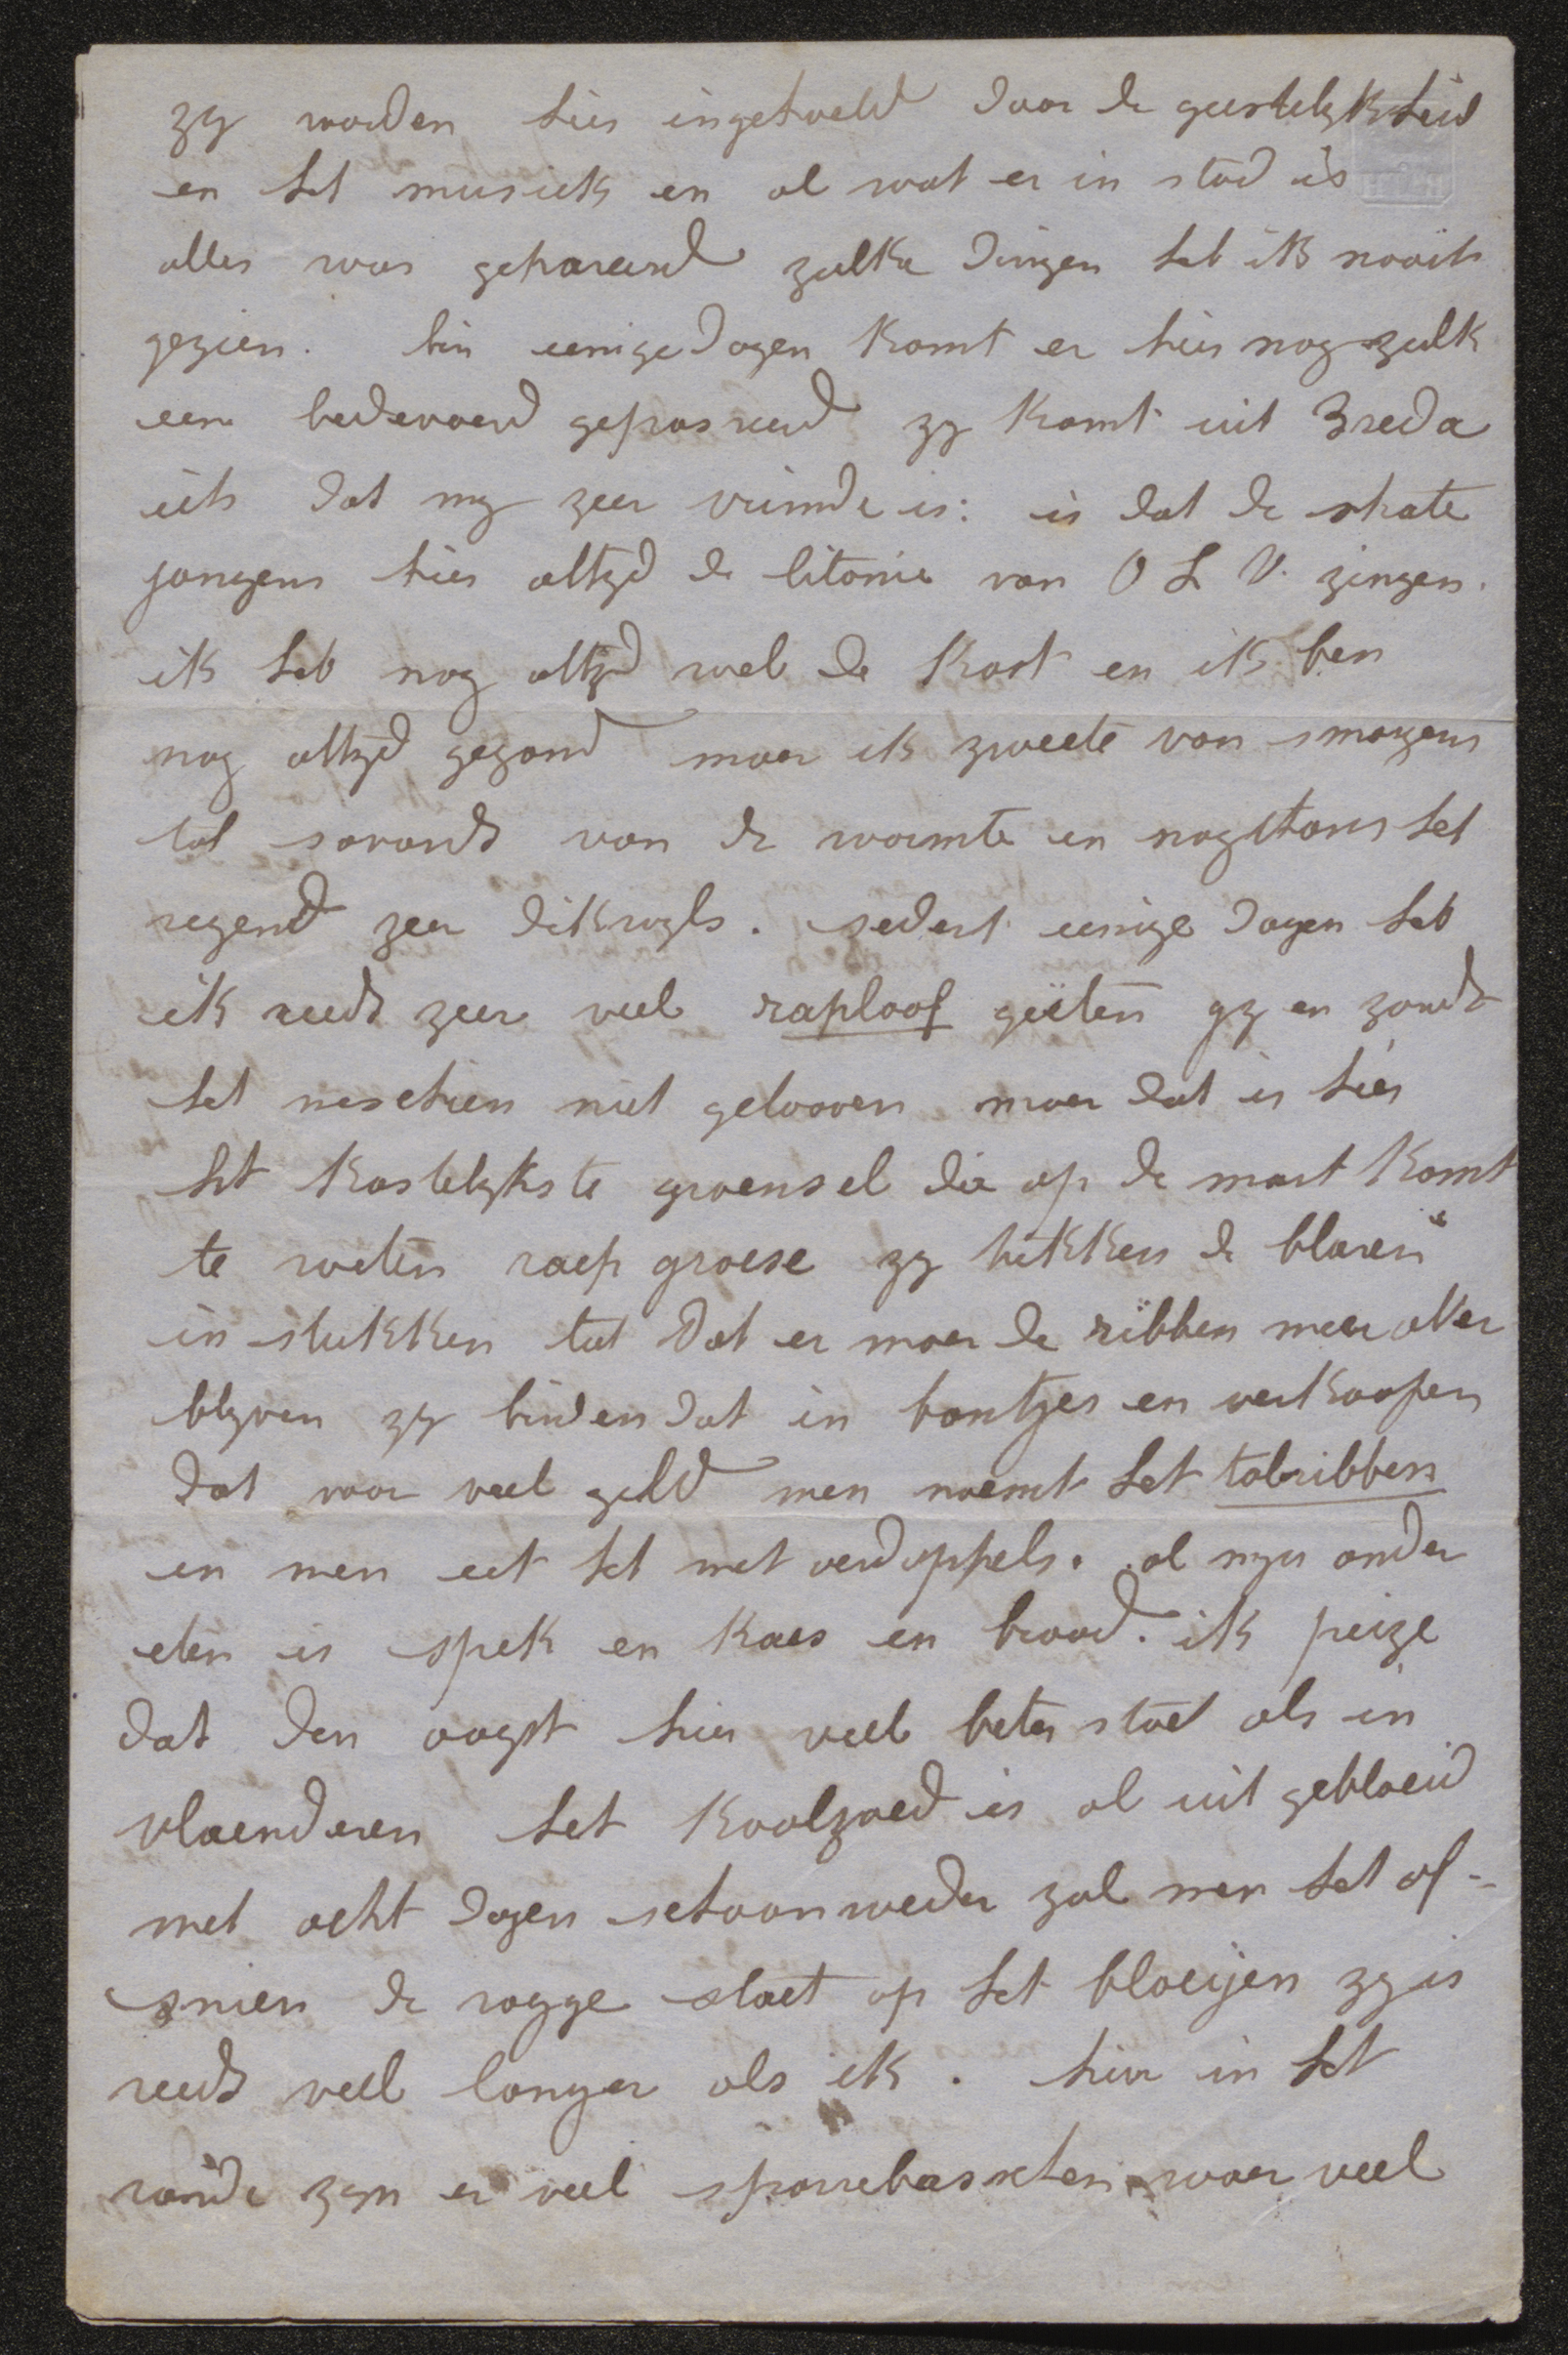 zy worden hier ingehaeld door de geestelykheid
en het musiek en al wat er in stad is
alles was gepareerd zulke dingen heb ik nooit
gezien. bin eenige dagen komt er hier nog zulk
een bedevaerd gepasseerd zy komt uit Breda
iets dat my zeer vrimde is: is dat de strate
jongens hier altyd de litanie van O L V. zingen.
ik heb nog altyd wel de kost en ik ben
nog altyd gezond maer ik zweete van smorgens
tot savonds van de warmte en nogthans het
regend zeer dikwyls. sedert eenige dagen heb
ik reeds zeer veel raploof geëten gy en zoudt
het meschien niet gelooven maer dat is hier
het kostelykste groensel die op de mart komt
te weten raep groese zy trekken de blaren
in stukken tot dat er maer de ribben meer over
blyven zy binden dat in bontjes en verkoopen
dat voor veel geld men noemt het tolribben
en men eet het met erdappels. al myn ander
eten is spek en kaes en brood. ik peize
dat den oogst hier veel beter staet als in
vlaenderen het koolzaed is al uit gebloeid
met acht dagen schoon weder zal men het af-
snien de rogge staet op het bloeijen zy is
reeds veel langer als ik. hier in het
ronde zyn er veel sparrebosschen waer veel